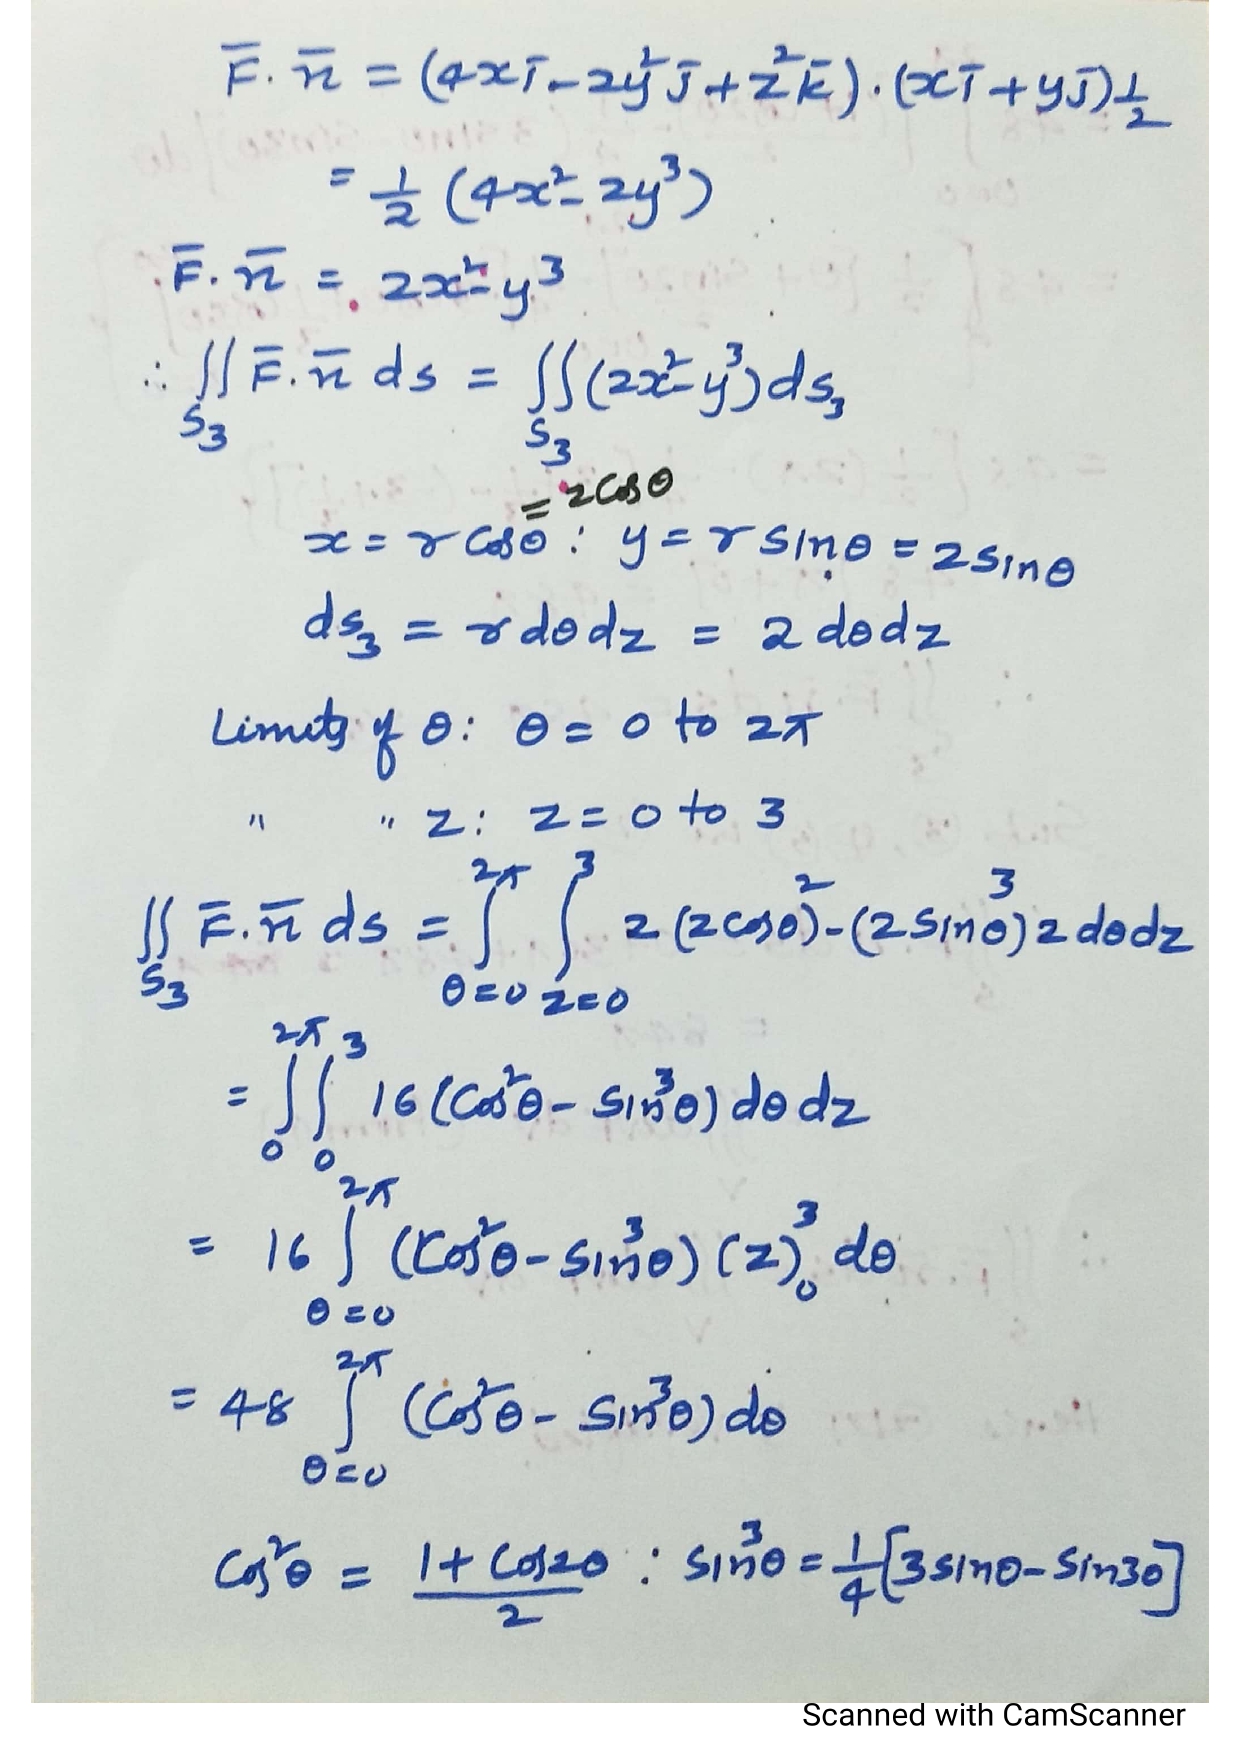 F̅. n̅ = (4xi̅ - 2y²j̅ + z²k̅). (xi̅ + yj̅) 1/2
= 1/2 (4x² - 2y³)
F̅. n̅ = 2x² - y³
∴ ∬_S₃ F̅. n̅ ds = ∬_S₃ (2x² - y³) ds₃
x = r cosθ = 2cosθ : y = r sinθ = 2 sinθ
ds₃ = r dθ dz = 2 dθ dz
Limits of θ: θ = 0 to 2π
" " z: z = 0 to 3
∬_S₃ F̅. n̅ ds = ∫_{θ=0}^{2π} ∫_{z=0}^{3} 2 (2cosθ)² - (2sinθ)³ 2 dθ dz
= ∫_0^{2π} ∫_0^3 16 (cos²θ - sin³θ) dθ dz
= 16 ∫_{θ=0}^{2π} (cos²θ - sin³θ) (z)_0^3 dθ
= 48 ∫_{θ=0}^{2π} (cos²θ - sin³θ) dθ
cos²θ = (1 + cos2θ)/2 : sin³θ = 1/4 [3 sinθ - sin3θ]
Scanned with CamScanner